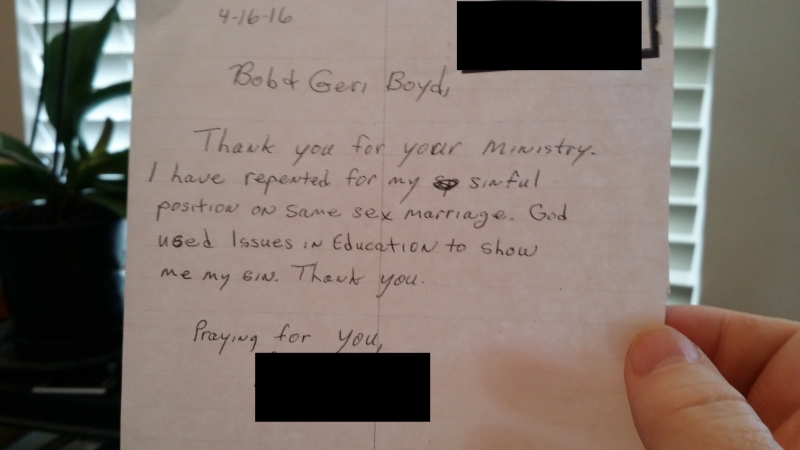 4-16-16
Bob & Geri Boyd,
Thank you for your Ministry.
I have repented for my sinful
position on same sex marriage. God
used Issues in Education to show
me my sin. Thank you.
Praying for you,